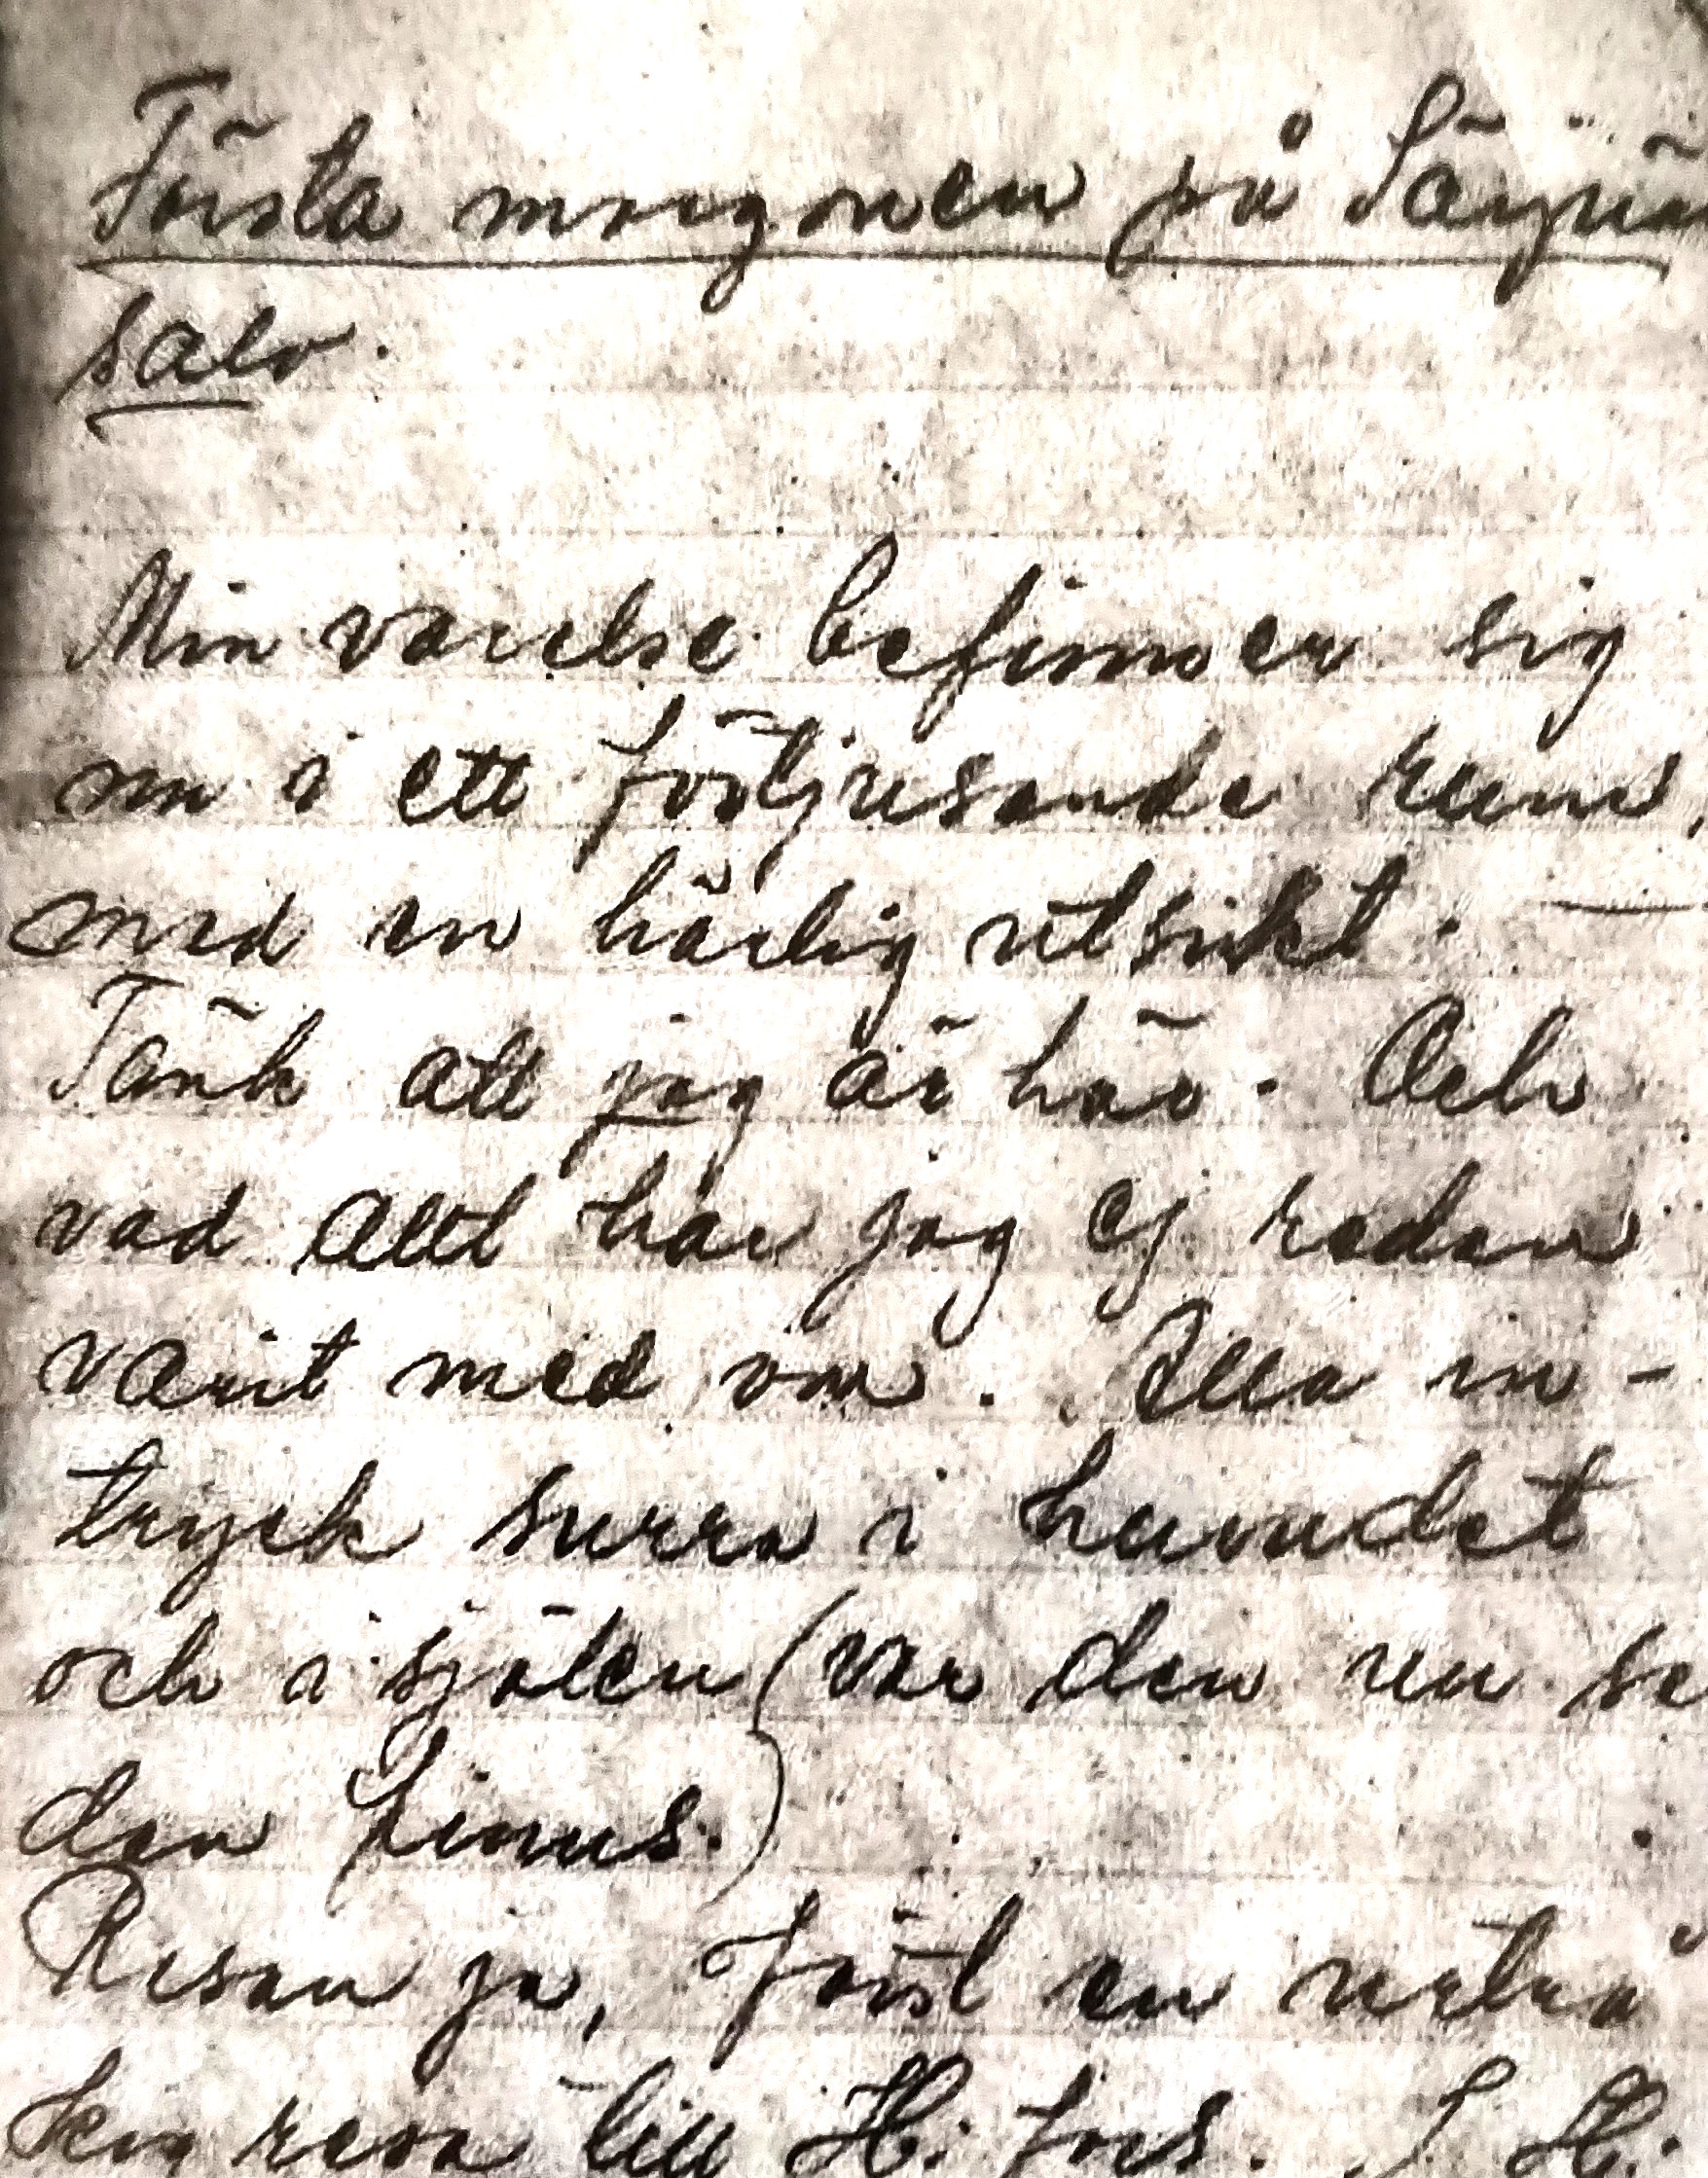 Första morgonen på Särjnä
salo.
Min varelse befinner sig
nu i ett förtjusande rum,
med en härlig utsikt. —
Tänk att jag är här. Och
vad allt har jag ej redan
varit med om. Alla in-
tryck surra i huvudet
och i själen (var den nu se
den finnes.)
Resan ja, först en uttrå
kig resa till H:fors. I H: